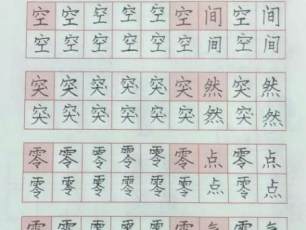 空空空空空空间空间
空空空空空空间空间
突突突突突突然突然
突突突突突突然突然
零零零零零零点零点
零零零零零零点零点